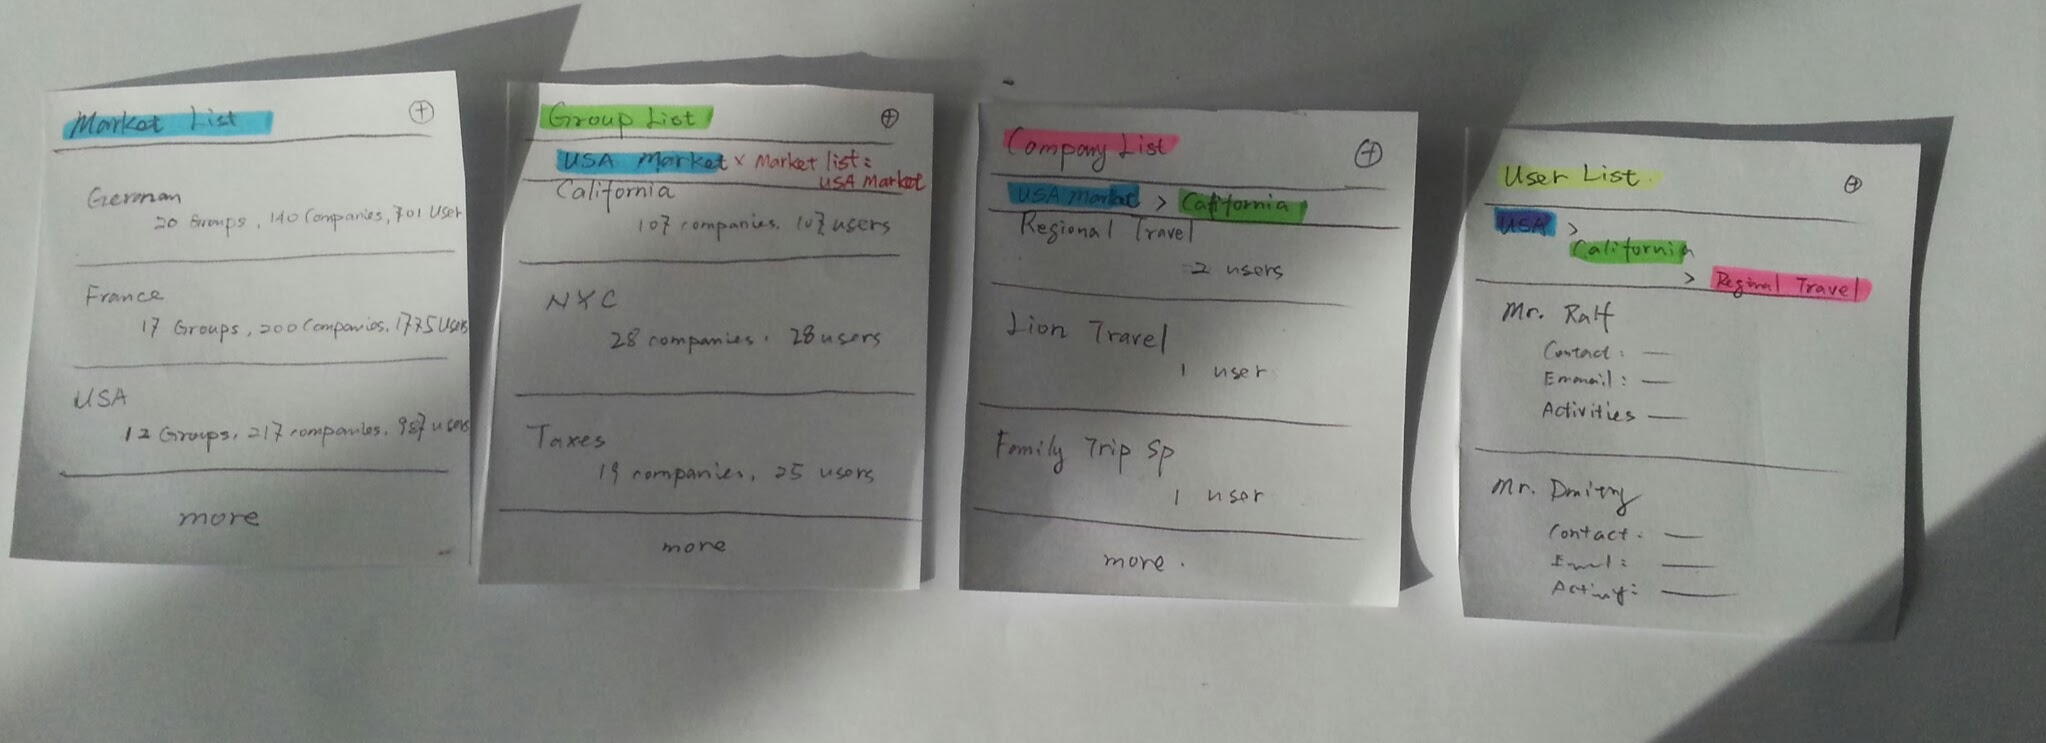 Market List
German
20 Groups, 140 Companies, 701 User
France
17 Groups, 200 Companies, 1775 Users
USA
12 Groups, 217 companies, 987 users
more
Group List
USA Market × Market list:
USA Market
California
107 companies. 107 users
NYC
28 companies. 28 users
Taxes
19 companies, 25 users
more
Company List
USA Market > California
Regional Travel
2 users
Lion Travel
1 user
Family Trip Sp
1 user
more.
User List
USA >
California
> Reginal Travel
Mr. Ralf
Contact: —
Emmail: —
Activities —
Mr. Dmitry
Contact. —
Email: —
Activity: —